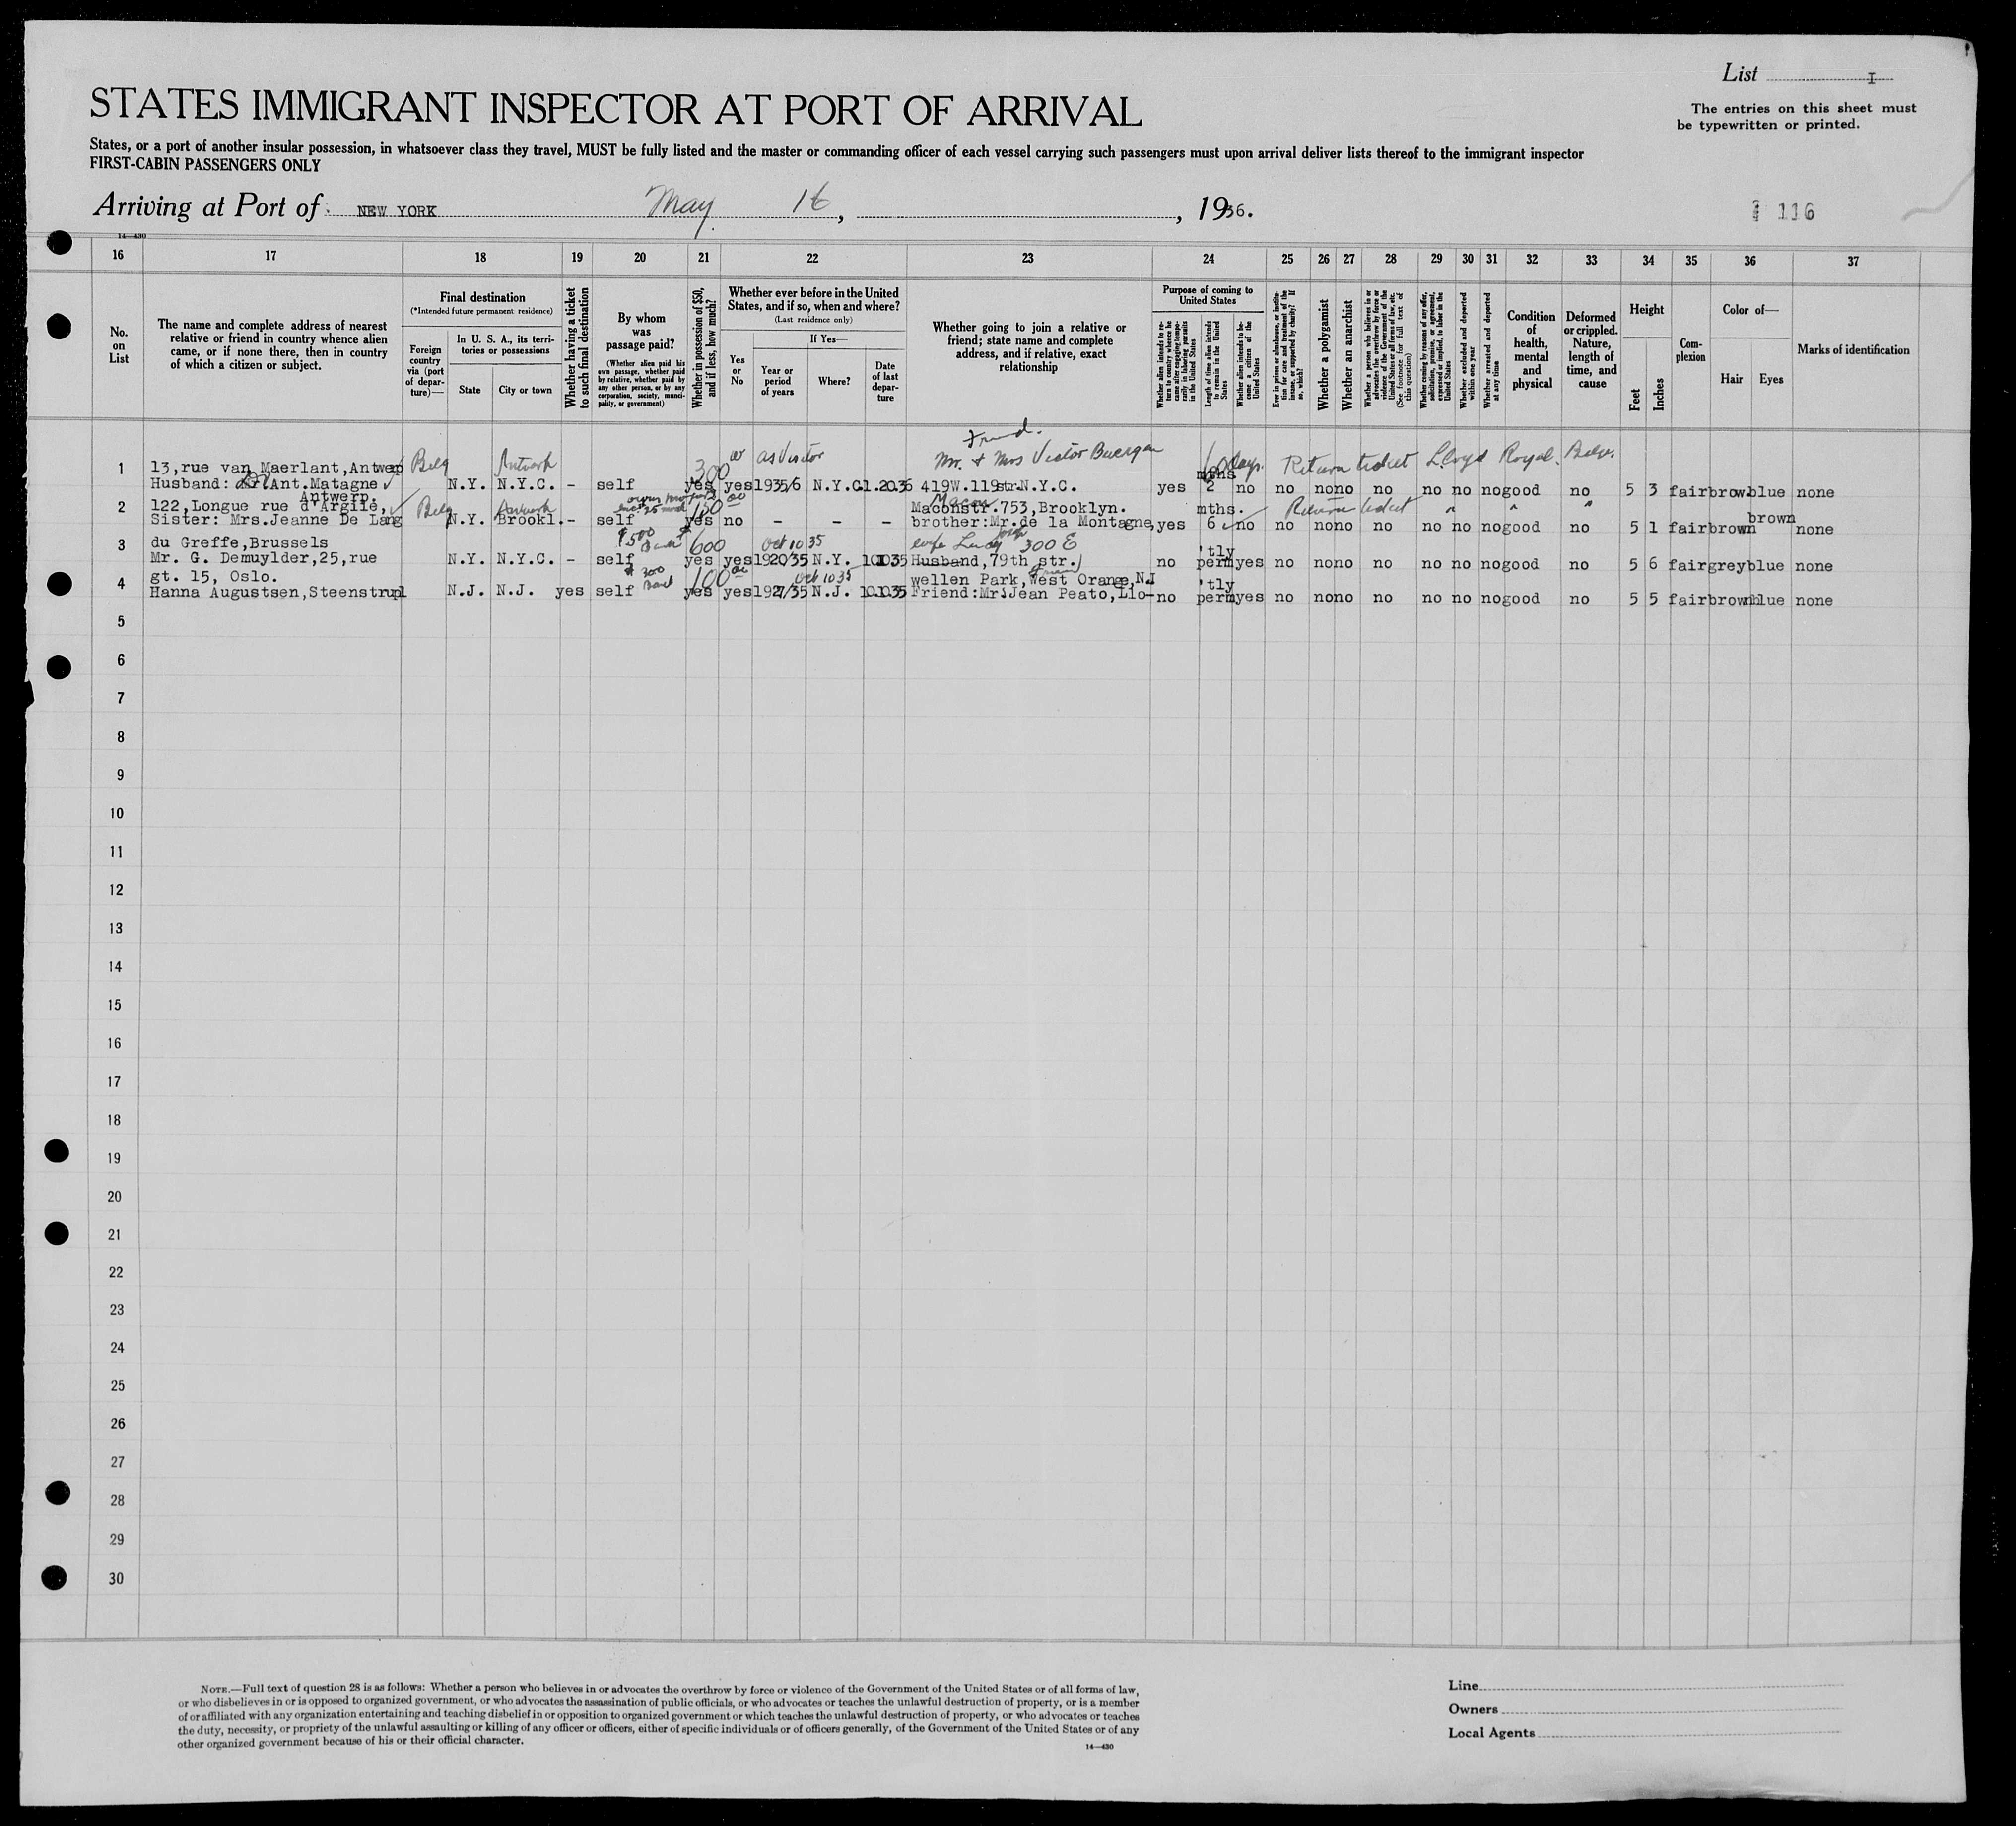 List I
The entries on this sheet must
be typewritten or printed.
STATES IMMIGRANT INSPECTOR AT PORT OF ARRIVAL
States, or a port of another insular possession, in whatsoever class they travel, MUST be fully listed and the master or commanding officer of each vessel carrying such passengers must upon arrival deliver lists thereof to the immigrant inspector
FIRST-CABIN PASSENGERS ONLY
Arriving at Port of NEW YORK May 16, , 1936.
116
14—430
16 17 18 19 20 21 22 23 24 25 26 27 28 29 30 31 32 33 34 35 36 37
No. on List
The name and complete address of nearest relative or friend in country whence alien came, or if none there, then in country of which a citizen or subject.
Final destination
(*Intended future permanent residence)
Foreign country via (port of departure)—
In U. S. A., its territories or possessions
State
City or town
Whether having a ticket to such final destination
By whom was passage paid?
(Whether alien paid his own passage, whether paid by relative, whether paid by any other person, or by any corporation, society, municipality, or government)
Whether in possession of $50, and if less, how much?
Whether ever before in the United States, and if so, when and where?
(Last residence only)
Yes or No
If Yes—
Year or period of years
Where?
Date of last departure
Whether going to join a relative or friend; state name and complete address, and if relative, exact relationship
Purpose of coming to United States
Whether alien intends to return to country whence he came after engaging temporarily in laboring pursuits in the United States
Length of time alien intends to remain in the United States
Whether alien intends to become a citizen of the United States
Ever in prison or almshouse, or institution for care and treatment of the insane, or supported by charity? If so, which?
Whether a polygamist
Whether an anarchist
Whether a person who believes in or advocates the overthrow by force or violence of the Government of the United States or all forms of law, etc. (See footnote for full text of this question)
Whether coming by reasons of any offer, solicitation, promise, or agreement, expressed or implied, to labor in the United States
Whether excluded and deported within one year
Whether arrested and deported at any time
Condition of health, mental and physical
Deformed or crippled. Nature, length of time, and cause
Height
Feet
Inches
Complexion
Color of—
Hair
Eyes
Marks of identification
Friend.
1 13,rue van Maerlant,Antwerp Belg Antwerp 300 as Visitor Mr. & Mrs Victor Buergan 60 days. Return ticket Lloyd Royal Belge.
Husband: Ant.Matagne N.Y. N.Y.C. - self yes yes 1935/6 N.Y.C. 1.20.36 419W.119str.N.Y.C. yes mths. 2 no no no no no no no no good no 5 3 fair brow. blue none
Antwerp.
2 122,Longue rue d'Argile, Belg Antwerp 150 00 Macon Maconstr.753,Brooklyn. mths. Return ticket
Sister: Mrs.Jeanne De Lang N.Y. Brookl. - self yes no - - - brother:Mr.de la Montagne, yes 6 no no no no no no no no good no 5 1 fair brown brown none
3 du Greffe,Brussels $500 600 Oct 10 35 300 E
Mr. G. Demuylder,25,rue N.Y. N.Y.C. - self yes yes 1920/35 N.Y. 10.10.35 Husband,79th str. no perm 'tly yes no no no no no no no good no 5 6 fair grey blue none
4 gt. 15, Oslo. $300 100 00 Oct 10 35 wellen Park,West Orange,N.J
Hanna Augustsen,Steenstrupl N.J. N.J. yes self yes yes 1927/35 N.J. 10.10.35 Friend:Mr.Jean Peato,Llo- no perm 'tly yes no no no no no no no good no 5 5 fair brown blue none
5
6
7
8
9
10
11
12
13
14
15
16
17
18
19
20
21
22
23
24
25
26
27
28
29
30
NOTE.—Full text of question 28 is as follows: Whether a person who believes in or advocates the overthrow by force or violence of the Government of the United States or of all forms of law,
or who disbelieves in or is opposed to organized government, or who advocates the assassination of public officials, or who advocates or teaches the unlawful destruction of property, or is a member
of or affiliated with any organization entertaining and teaching disbelief in or opposition to organized government or which teaches the unlawful destruction of property, or who advocates or teaches
the duty, necessity, or propriety of the unlawful assaulting or killing of any officer or officers, either of specific individuals or of officers generally, of the Government of the United States or of any
other organized government because of his or their official character.
14—430
Line
Owners
Local Agents